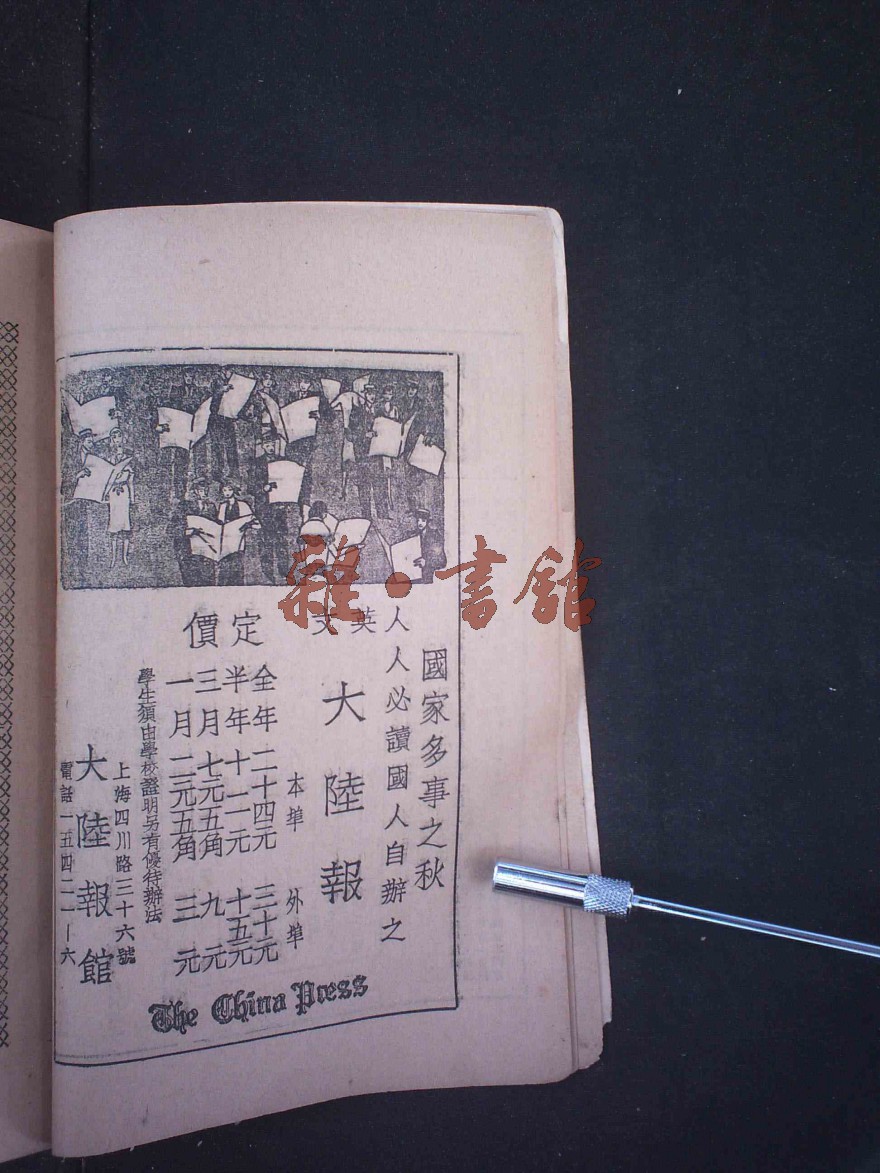 國家多事之秋
人人必讀國人自辦之
英文
大陸報
本埠 外埠
定價
全年 二十四元 三十元
半年 十二元 十五元
三月 七元五角 九元
一月 二元五角 三元
學生須由學校證明另有優待辦法
上海四川路三十六號
大陸報館
電話一五四二一—六
The China Press
雜·書館